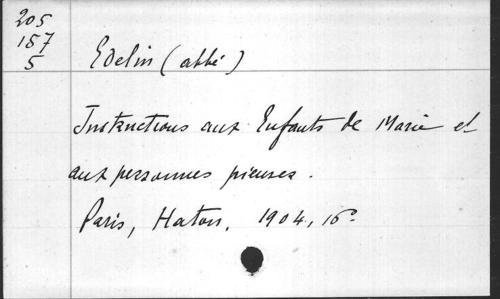 205
157
5
Edelin (abbé)
Instructions aux Enfants de Marie et
aux personnes pieuses.
Paris, Haton, 1904, 16º